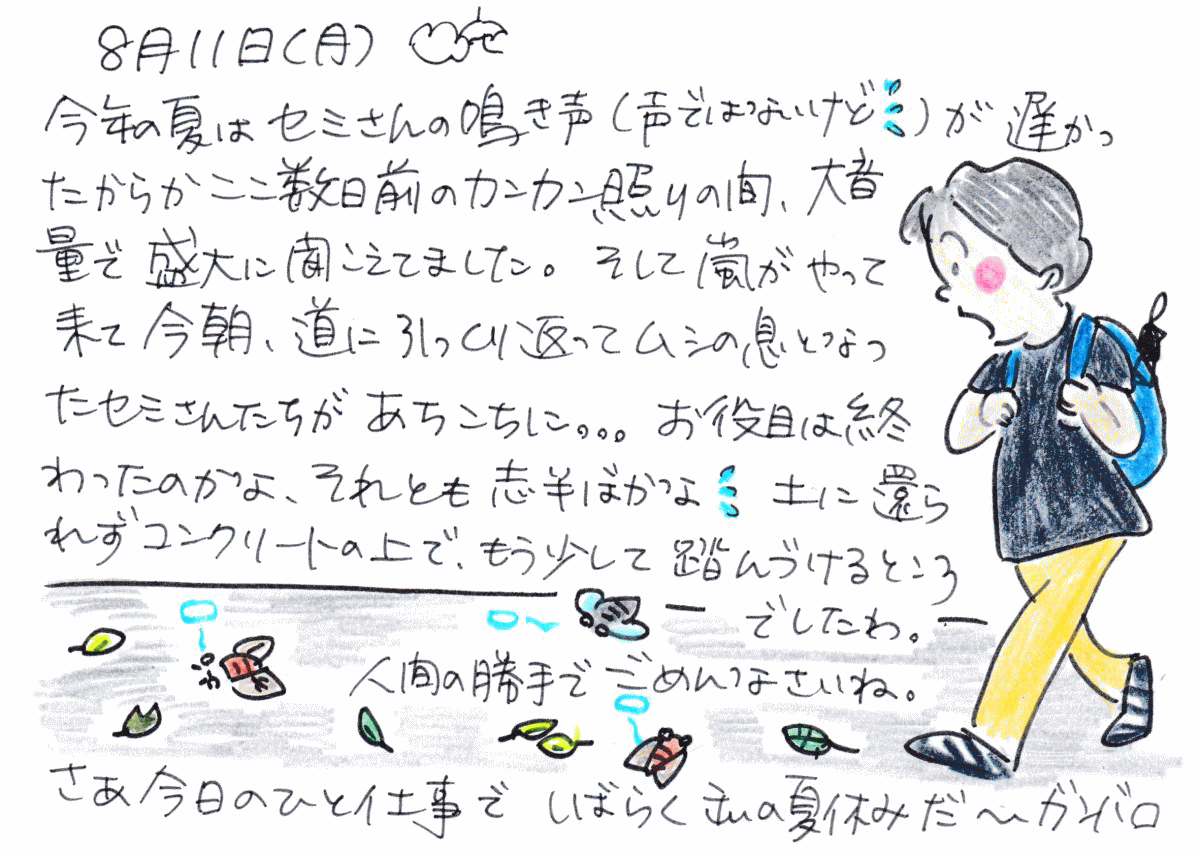 8月11日(月)
今年の夏はセミさんの鳴き声(声ではないけど)が遅かっ
たからかここ数日前のカンカン照りの間、大音
量で盛大に聞こえてました。そして嵐がやって
来て今朝、道に引っくり返ってムシの息となっ
たセミさんたちがあちこちに。。。お役目は終
わったのかな、それとも志半ばかな 土に還ら
れずコンクリートの上で、もう少しで踏んづけるところ
でしたわ。
人間の勝手でごめんなさいね。
さあ今日のひと仕事で しばらく私の夏休みだ〜ガンバロ